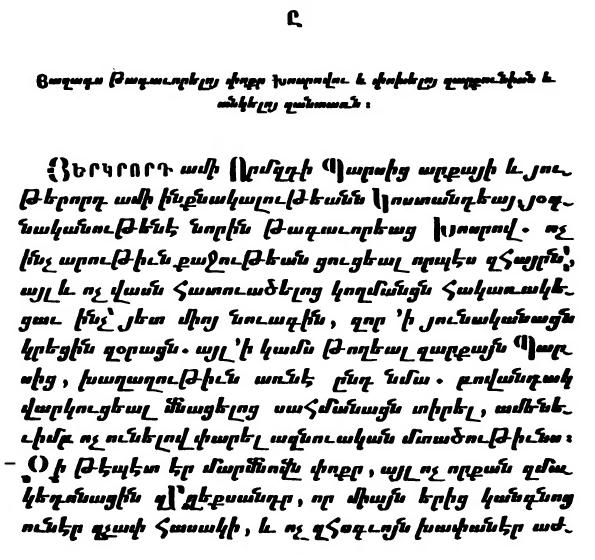 Ը
Յաղագս Թագաւորելոյ փոքր Խոսրովու և փոխելոյ զարքունիսն և
տնկելոյ զանտառն :
ՅԵՐԿՐՈՐԴ ամի Որմզդի Պարսից արքայի և յու-
թերորդ ամի ինքնակալութեանն Կոստանդեայ, յօգ-
նականութենէ նորին թագաւորեաց Խոսրով. ոչ
ինչ արութիւն քաջութեան ցուցեալ որպէս զՀայրն՝,
այլ և ոչ վասն Հատուածելոց կողմանցն Հակառակե-
ցաւ ինչ՝ յետ միոյ նուագին, զոր ՚ի յունականացն
կրեցին զօրացն. այլ ՚ի կամս թողեալ զարքայն Պար-
սից, խաղաղութիւն առնէ ընդ նմա. բովանդակ
վարկուցեալ մնացելոց սաՀմանացն տիրել, ամենե-
ւիմբ ոչ ունելով փարել ազնուական մտածութիւնս :
Զի թէպէտ էր մարմնովն փոքր, այլ ոչ որքան զմա-
կեդոնացին զԱղեքսանդր, որ միայն երից կանգնոց
ունէր զչափ Հասակի, և ոչ զՀոգւոյն խափանէր աժ-